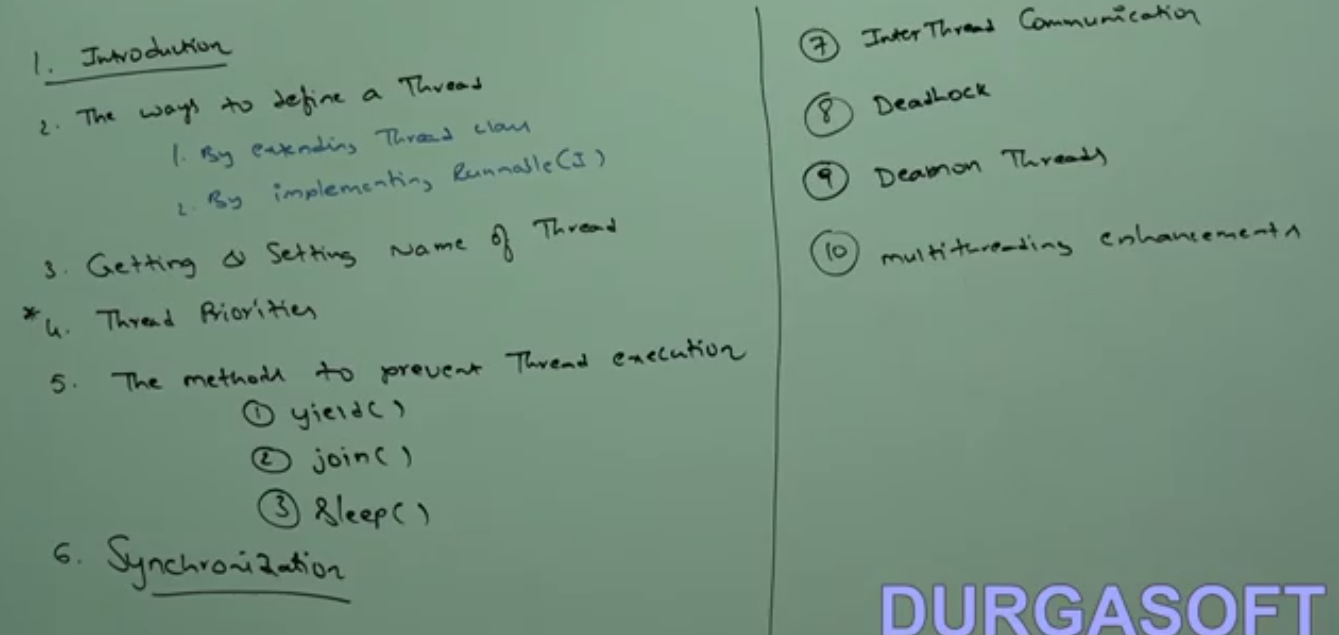 1. Introduction
2. The ways to define a Thread
1. By extending Thread class
2. By implementing Runnable(I)
3. Getting & Setting Name of Thread
* 4. Thread Priorities
5. The methods to prevent Thread execution
① yield()
② join()
③ Sleep()
6. Synchronization
⑦ Inter Thread Communication
⑧ Deadlock
⑨ Deamon Threads
⑩ multithreading enhancements
DURGASOFT